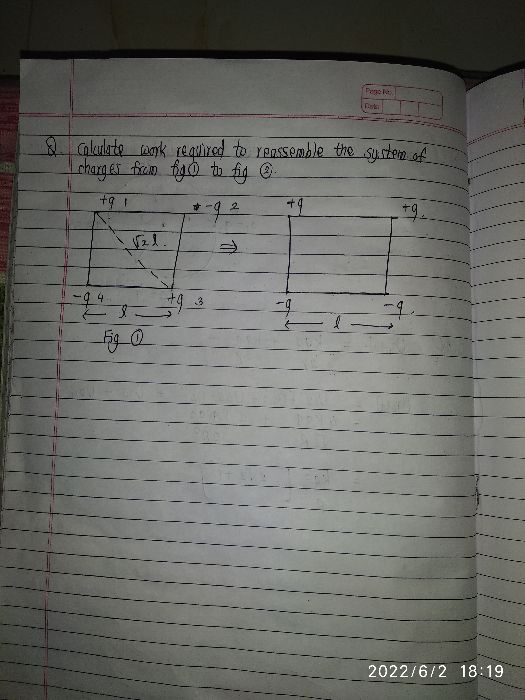 Page No.
Date
Q. Calculate work required to reassemble the system of
charges from fig ① to fig ②.
+q 1 -q 2 +q +q
√2 l ⇒
-q 4 +q 3 -q -q
l l
Fig ①
2022/6/2 18:19